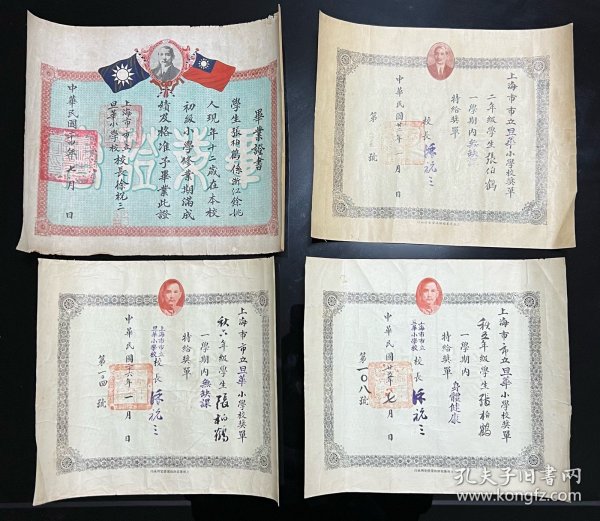 畢業證書
學生張柏鶴係浙江餘姚
人現年十二歲在本校
初級小學修業期滿成
績及格准予畢業此證
上海市市立
旦華小學校 校長徐祝三
中華民國 年七月 日
上海市市立旦華小學校獎單
二年級學生張伯鶴
一學期內無缺
特給獎單
校長 徐祝三
中華民國廿二年一月 日
第 號
上海市市立旦華小學校獎單
秋六年級學生張柏鶴
一學期內無缺課
特給獎單
上海市市立
旦華小學校 校長 徐祝三
中華民國廿六年一月 日
第一〇四號
上海市市立旦華小學校獎單
秋五年級學生張柏鶴
一學期內身體健康
特給獎單
上海市市立
旦華小學校 校長 徐祝三
中華民國廿五年七月 日
第一〇八號
孔夫子旧书网
www.kongfz.com